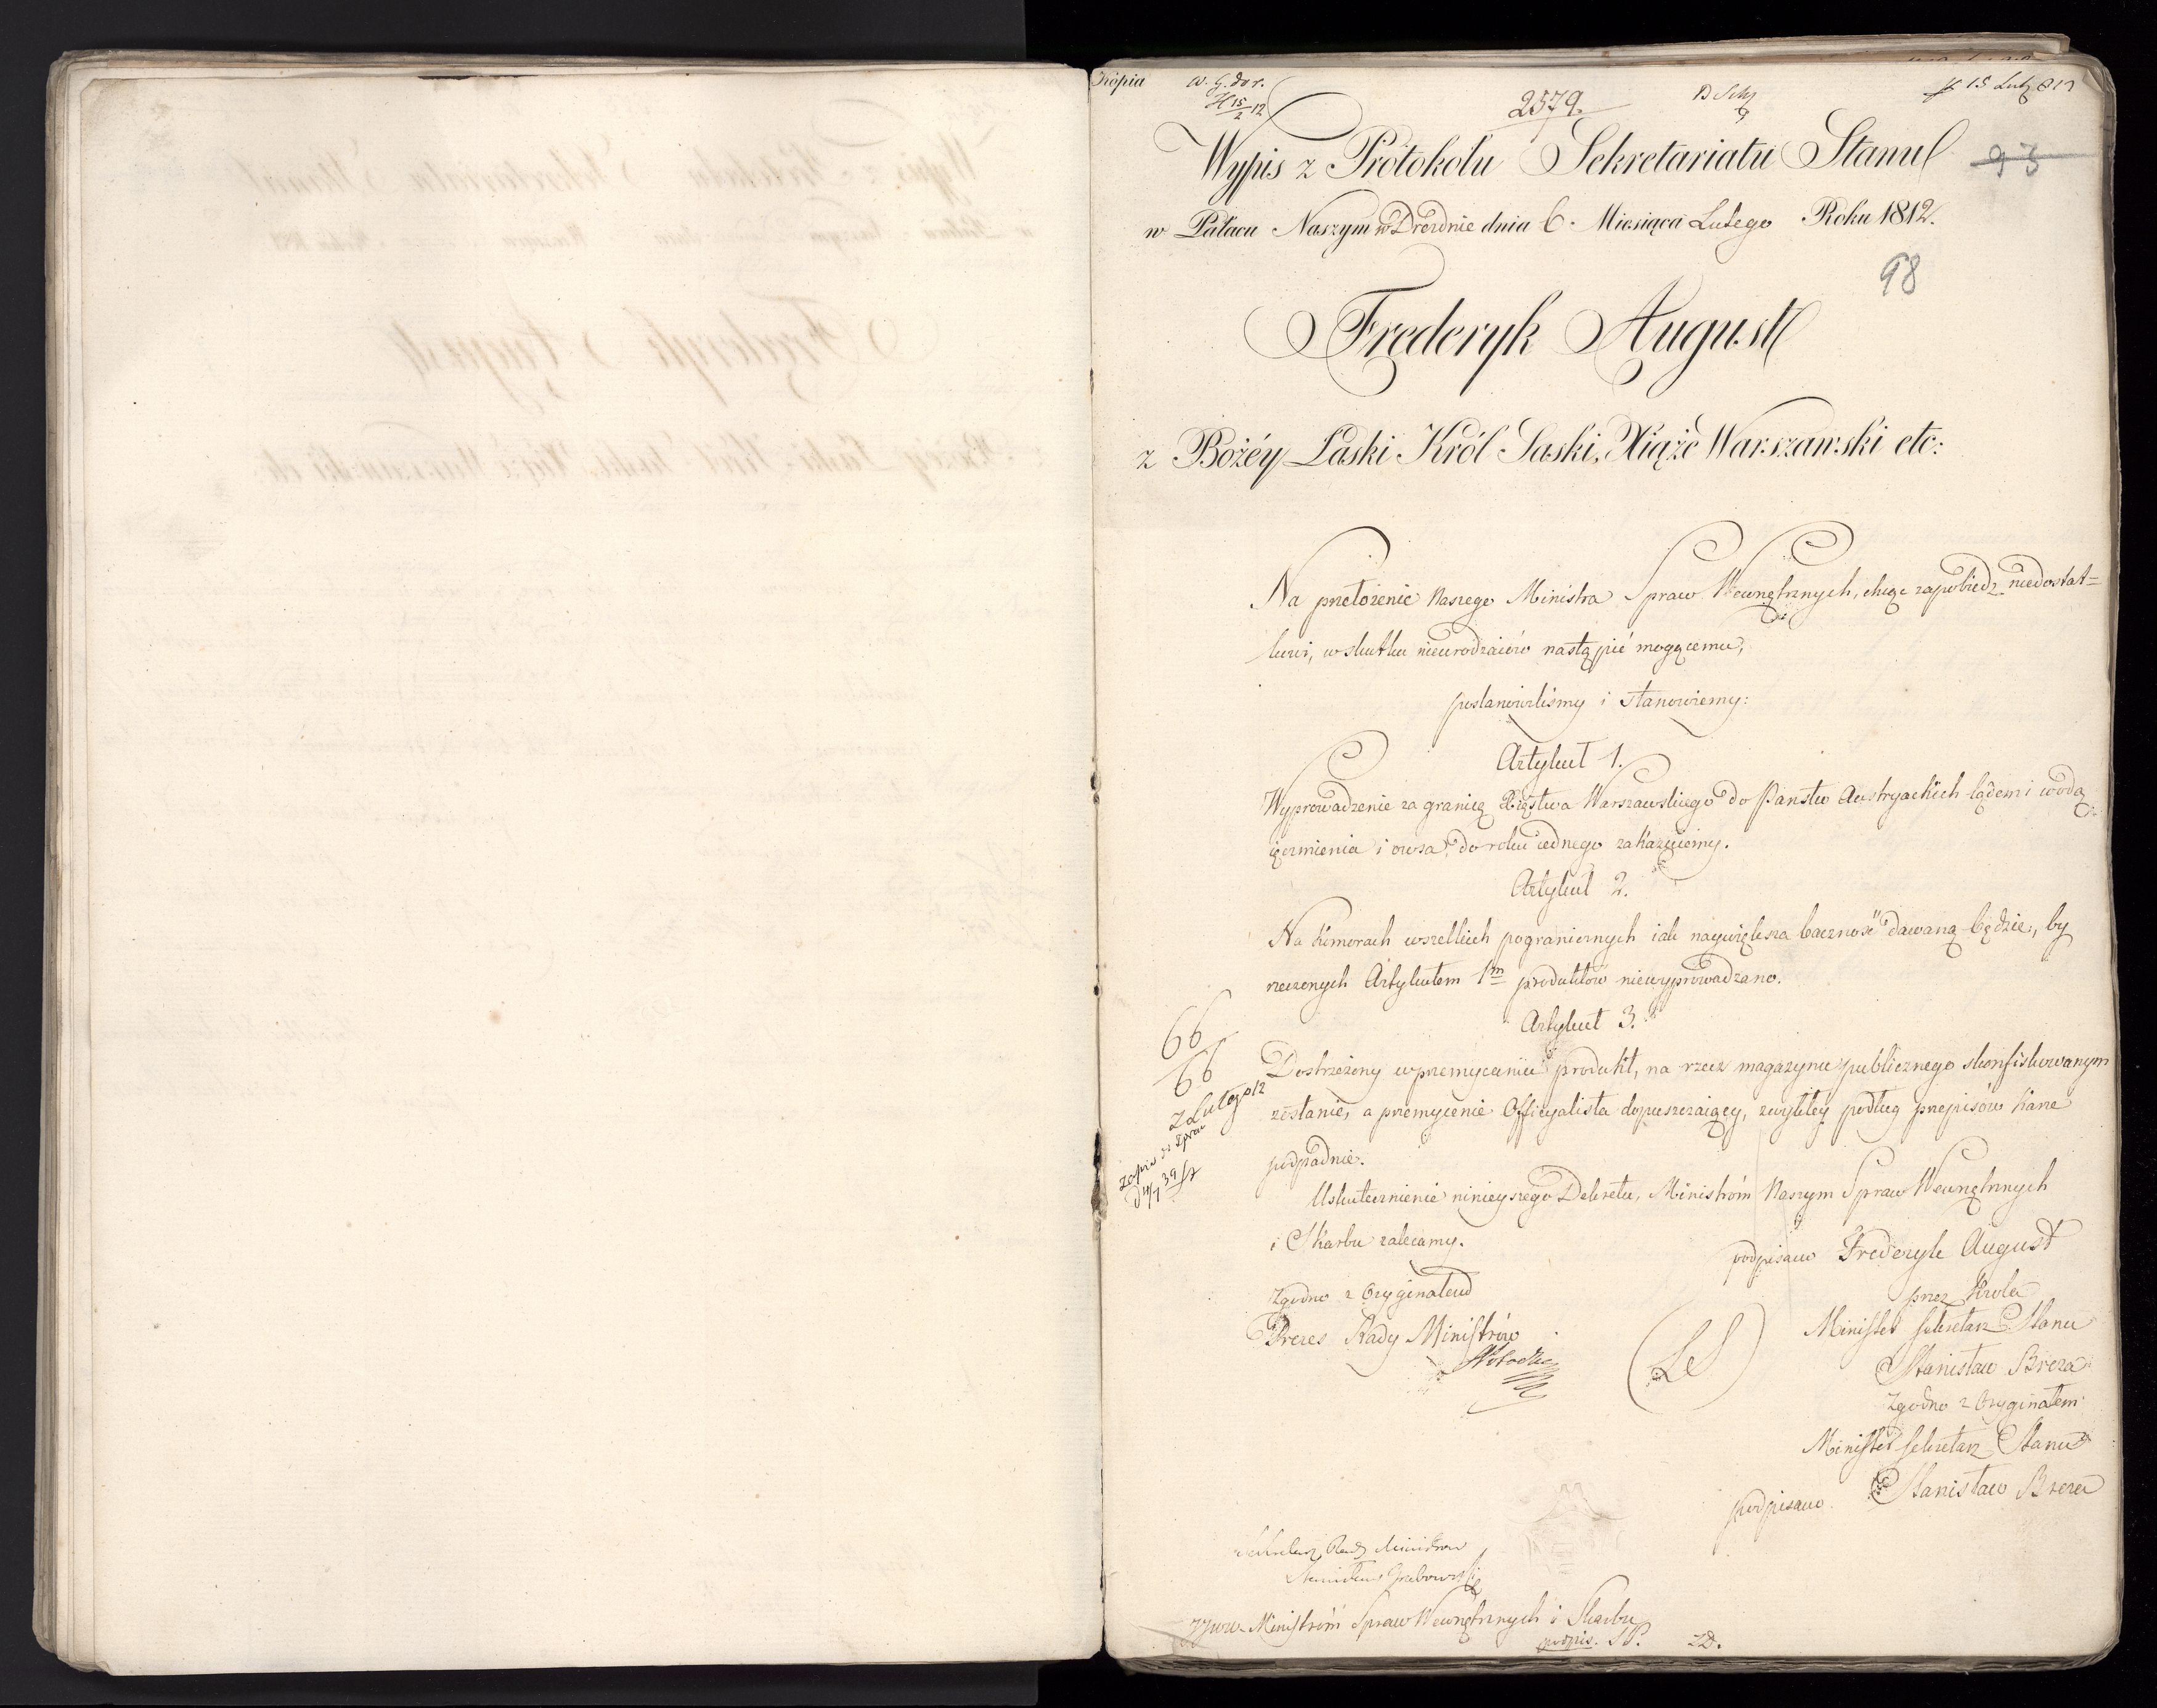 Kopia
2579.
15 Lut 812
Wypis z Protokolu Sekretariatu Stanu
93
w Pałacu Naszym w Dreźdnie dnia 6. Miesiąca Lutego Roku 1812.
98
Frederyk August
z Bożéy Łaski Król Saski, Xiąże Warszawski etc:
Na przełożenie Naszego Ministra Spraw Wewnętrznych, chcąc zapobiedz niedostat=
kowi, w skutku nieurodzaiów nastąpić mogącemu,
postanowiliśmy i stanowiemy:
Artykuł 1.
Wyprowadzenie za granicę Xięstwa Warszawskiego do Państw Austryackich lądem i wodą
ięczmienia i owsa, do roku iednego zakazuiemy.
Artykuł 2.
Na Komorach wszelkich pogranicznych iak naywiększa baczność dawaną będzie, by
rzeczonych Artykułem 1m produktów niewyprowadzano.
Artykuł 3.
Dostrzeżony w przemycaniu produkt, na rzecz magazynu publicznego skonfiskowanym
zostanie, a przemycenie Officyalista dopuszczaiący, zwykłey podług przepisów karze
podpadnie.
66
66
2 Lutego 12
Uskutecznienie ninieyszego Dekretu, Ministróm Naszym Spraw Wewnętrznych
i Skarbu zalecamy.
podpisano Frederyk August
przez Króla
Minister Sekretarz Stanu
Stanisław Breza
Zgodno z Oryginałem
Minister Sekretarz Stanu
podpisano Stanisław Breza
(LS)
Zgodno z Oryginałem
Prezes Rady Ministrów
Sekretarz Rady Ministrow
Stanisław Grabowski
JJWW. Ministróm Spraw Wewnętrznych i Skarbu
podpis. SP. ZD.